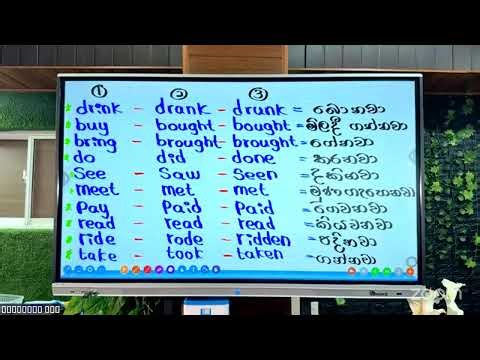 ① ② ③
drink - drank - drunk = බොනවා
buy - bought - bought = මිලදී ගන්නවා
bring - brought - brought = ගේනවා
do - did - done = කරනවා
See - Saw - Seen = දකිනවා
meet - met - met = මුණගැහෙනවා
Pay - Paid - Paid = ගෙවනවා
read - read - read = කියවනවා
ride - rode - ridden = පදිනවා
take - took - taken = ගන්නවා
zoom